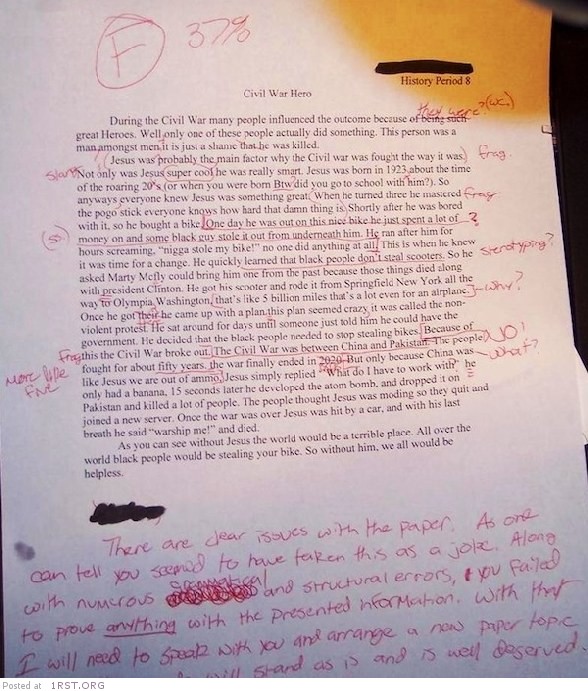 F 37%
History Period 8
Civil War Hero
they were? (wc)
During the Civil War many people influenced the outcome because of being such
great Heroes. Well only one of these people actually did something. This person was a
man amongst men it is just a shame that he was killed.
Jesus was probably the main factor why the Civil war was fought the way it was frag.
slang Not only was Jesus super cool he was really smart. Jesus was born in 1923 about the time
of the roaring 20's (or when you were born Btw did you go to school with him?). So
anyways everyone knew Jesus was something great. When he turned three he mastered frag
the pogo stick everyone knows how hard that damn thing is. Shortly after he was bored
with it, so he bought a bike. One day he was out on this nice bike he just spent a lot of ?
money on and some black guy stole it out from underneath him. He ran after him for
hours screaming, "nigga stole my bike!" no one did anything at all. This is when he knew
it was time for a change. He quickly learned that black people don't steal scooters. So he stereotyping?
asked Marty Mcfly could bring him one from the past because those things died along
with president Clinton. He got his scooter and rode it from Springfield New York all the
way to Olympia, Washington, that's like 5 billion miles that's a lot even for an airplane. - why?
Once he got their he came up with a plan, this plan seemed crazy it was called the non-
violent protest. He sat around for days until someone just told him he could have the
government. He decided that the black people needed to stop stealing bikes. Because of
frag this the Civil War broke out. The Civil War was between China and Pakistan. The people NO!
fought for about fifty years, the war finally ended in 2020. But only because China was what?
More like five
like Jesus we are out of ammo, Jesus simply replied "What do I have to work with" he
only had a banana, 15 seconds later he developed the atom bomb, and dropped it on
Pakistan and killed a lot of people. The people thought Jesus was moding so they quit and
joined a new server. Once the war was over Jesus was hit by a car, and with his last
breath he said "warship me!" and died.
As you can see without Jesus the world would be a terrible place. All over the
world black people would be stealing your bike. So without him, we all would be
helpless.
There are clear issues with the paper. As one
can tell you seemed to have taken this as a joke. Along
with numerous grammatical and structural errors, you failed
to prove anything with the presented information. With that
I will need to speak with you and arrange a new paper topic
will stand as is and is well deserved.
Posted at 1RST.ORG